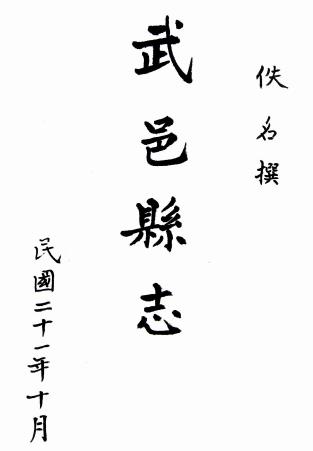 佚名撰
武邑縣志
民國二十一年十月